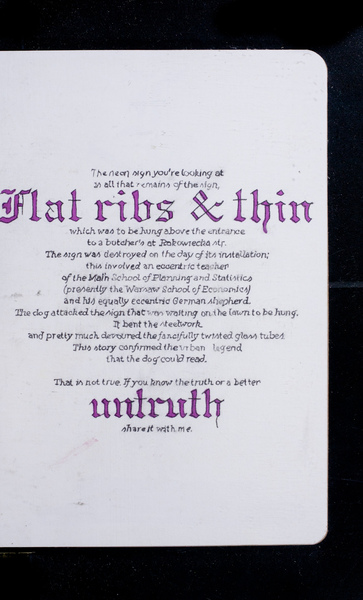 The neon sign you're looking at
is all that remains of the sign,
Flat ribs & thin
which was to be hung above the entrance
to a butcher's at Rakowiecka str.
The sign was destroyed on the day of its installation;
this involved an eccentric teacher
of the Main School of Planning and Statistics
(presently the Warsaw School of Economics)
and his equally eccentric German shepherd.
The dog attacked the sign that was waiting on the lawn to be hung.
It bent the steelwork
and pretty much devoured the fancifully twisted glass tubes.
This story confirmed the urban legend
that the dog could read.
That is not true. If you know the truth or a better
untruth
share it with me.